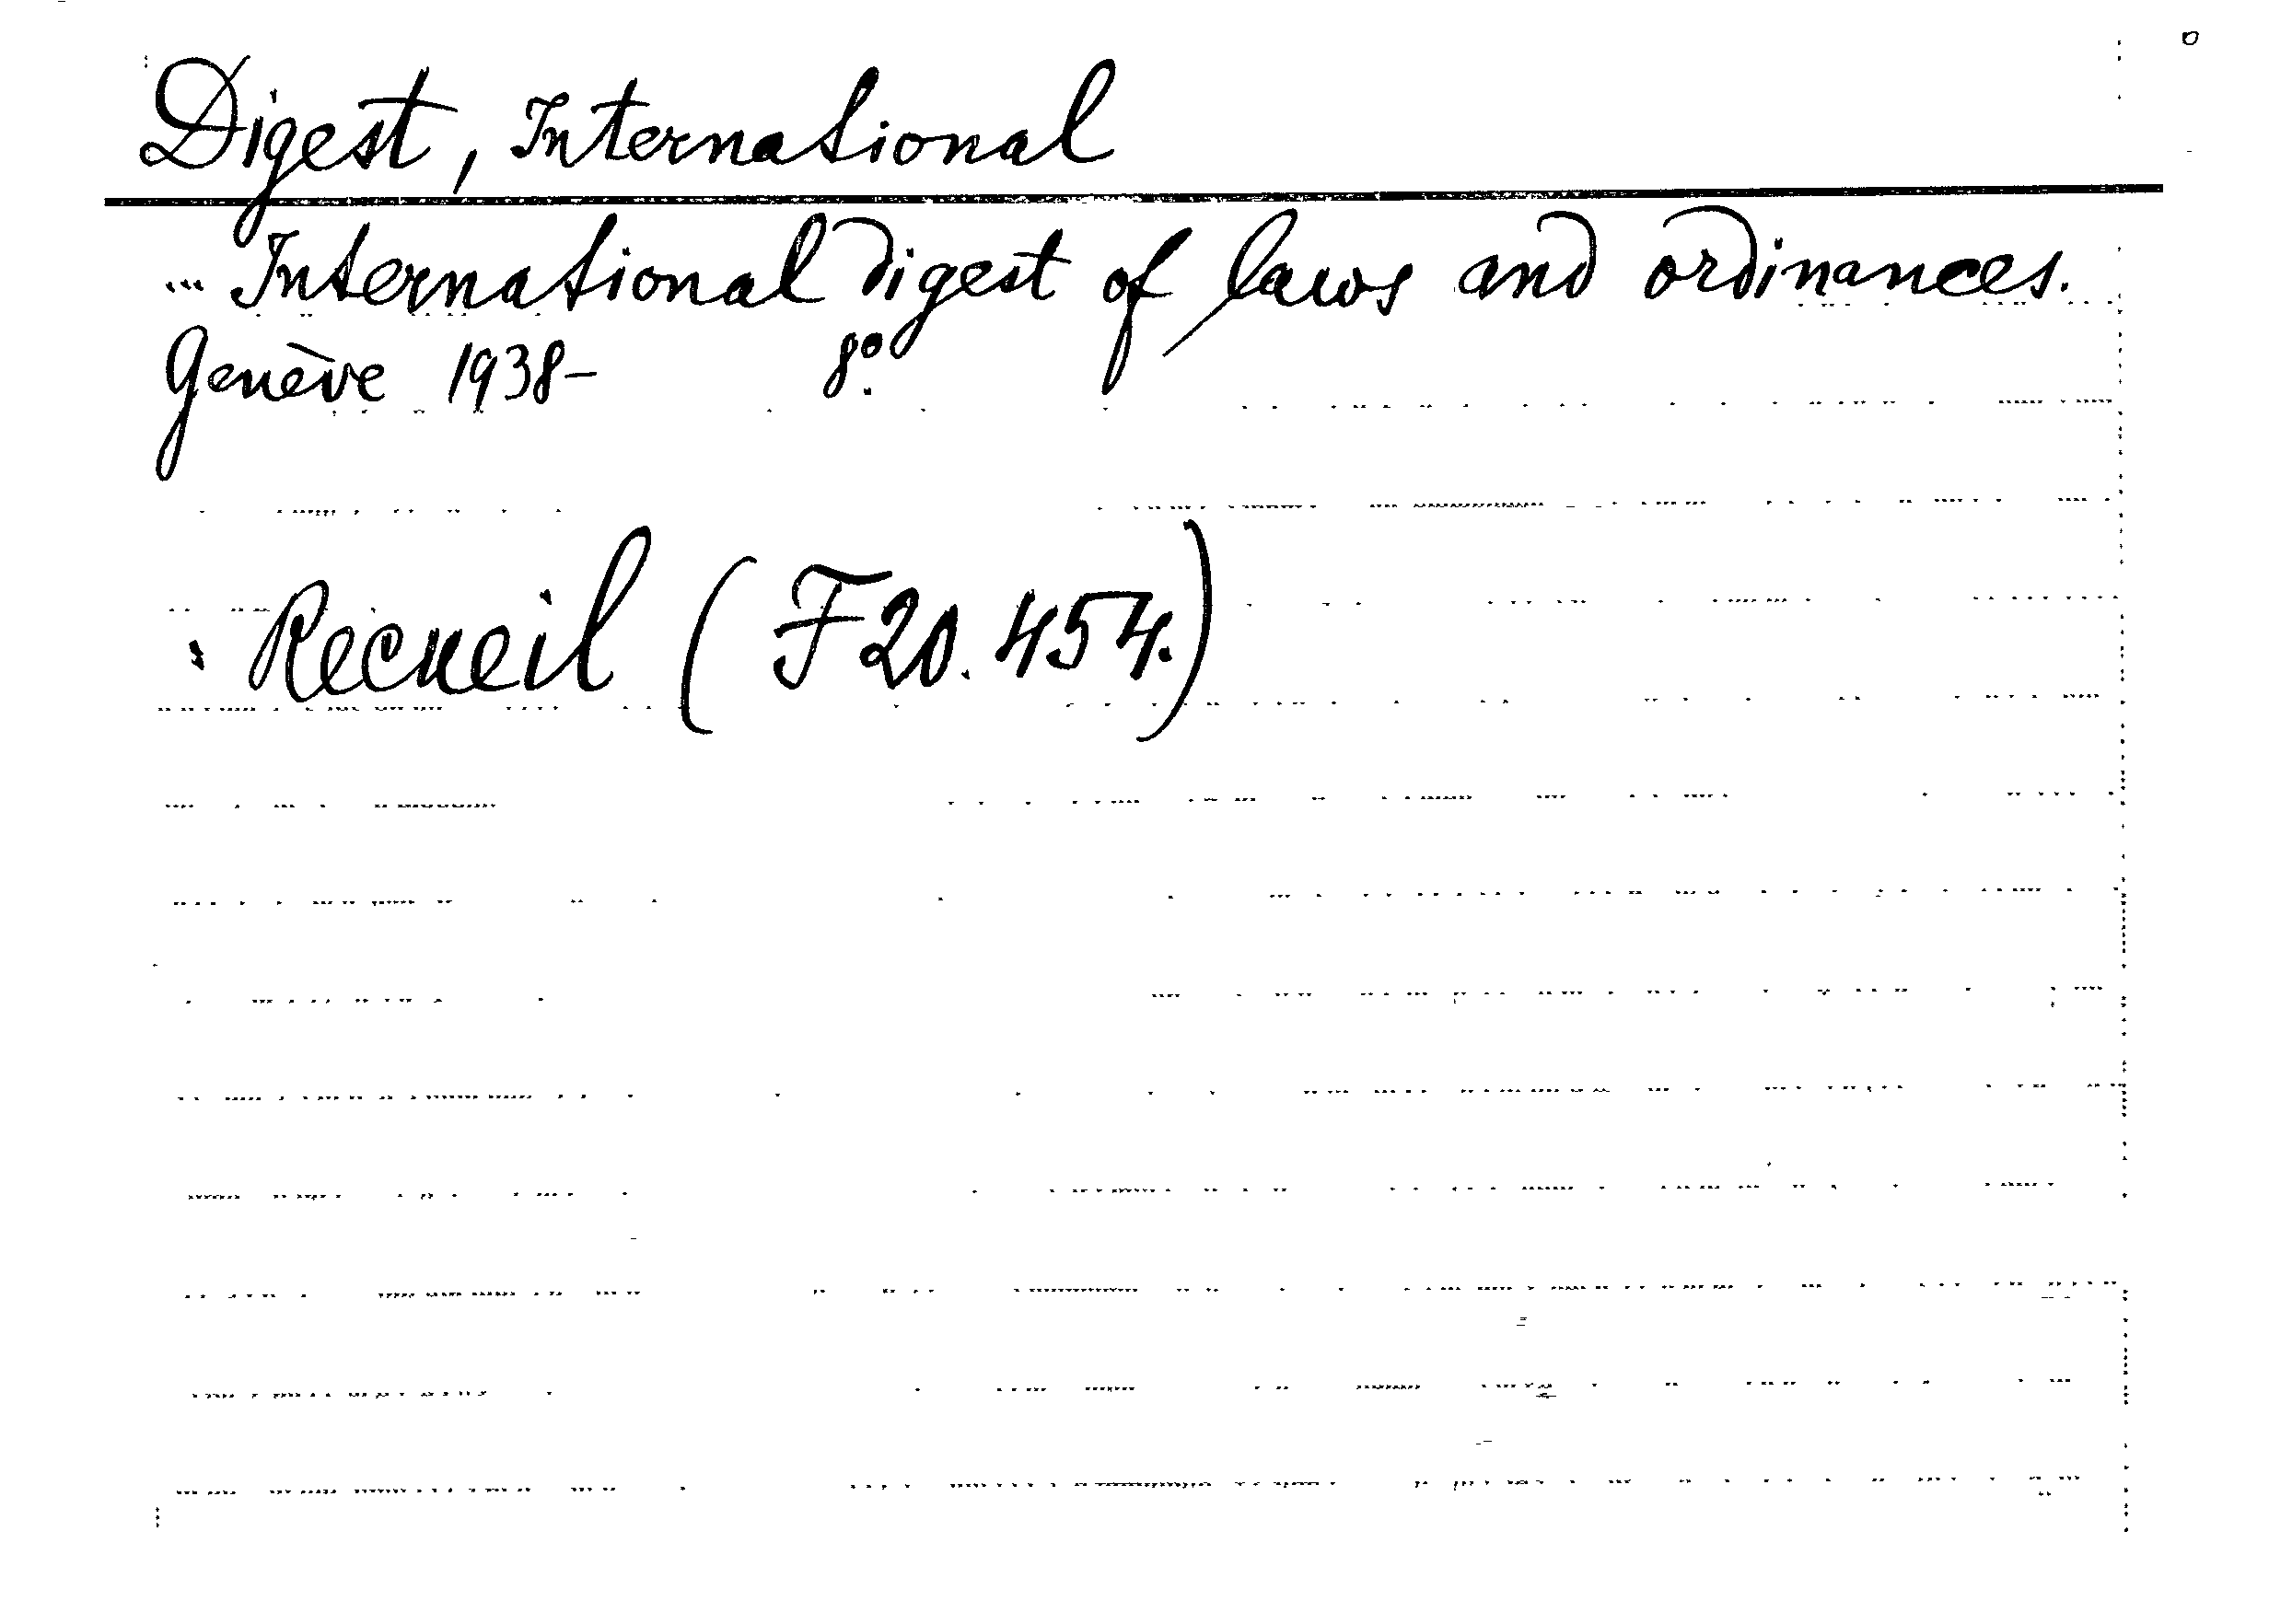 Digest, International
... International digest of laws and ordinances.
Genève 1938- 8º.
: Recueil (F 20.454.)